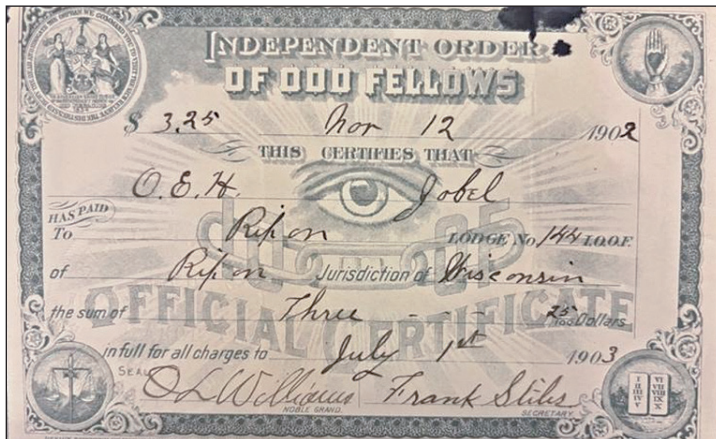 INDEPENDENT ORDER
OF ODD FELLOWS
$ 3.25 Nov 12 1902
THIS CERTIFIES THAT
O.E.H. Jobel
HAS PAID
To Ripon LODGE No. 144 I.O.O.F
of Ripon Jurisdiction of Wisconsin
the sum of Three 25/100 Dollars
OFFICIAL CERTIFICATE
in full for all charges to July 1st 1903
SEAL
O L Williams Frank Stiles
NOBLE GRAND. SECRETARY.
I II III IV V VI VII VIII IX X